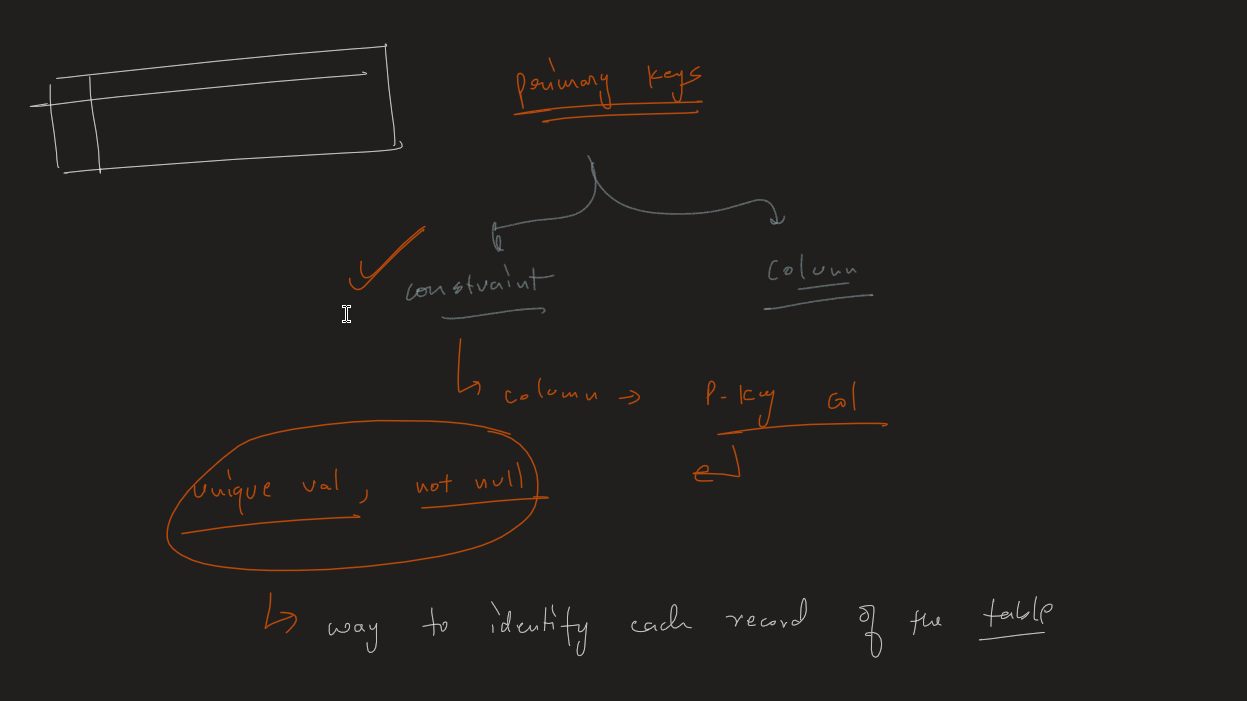 primary keys
constraint column
column → P-key col
unique val, not null
↳ way to identify each record of the table